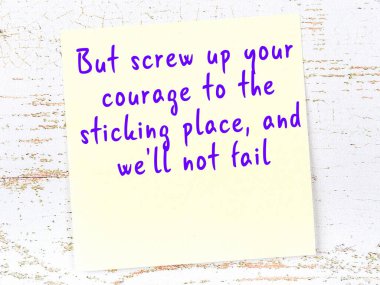 But screw up your
courage to the
sticking place, and
we'll not fail